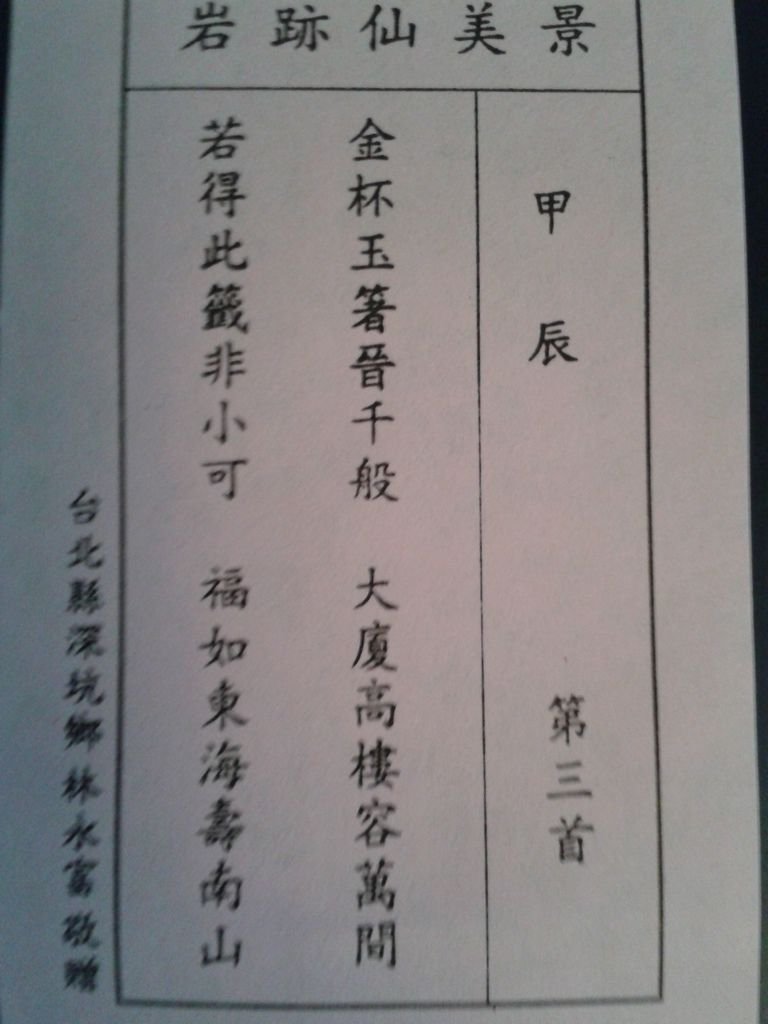 景美仙跡岩
甲辰 第三首
金杯玉箸晉千般 大廈高樓容萬間
若得此籤非小可 福如東海壽南山
台北縣深坑鄉林永富敬贈